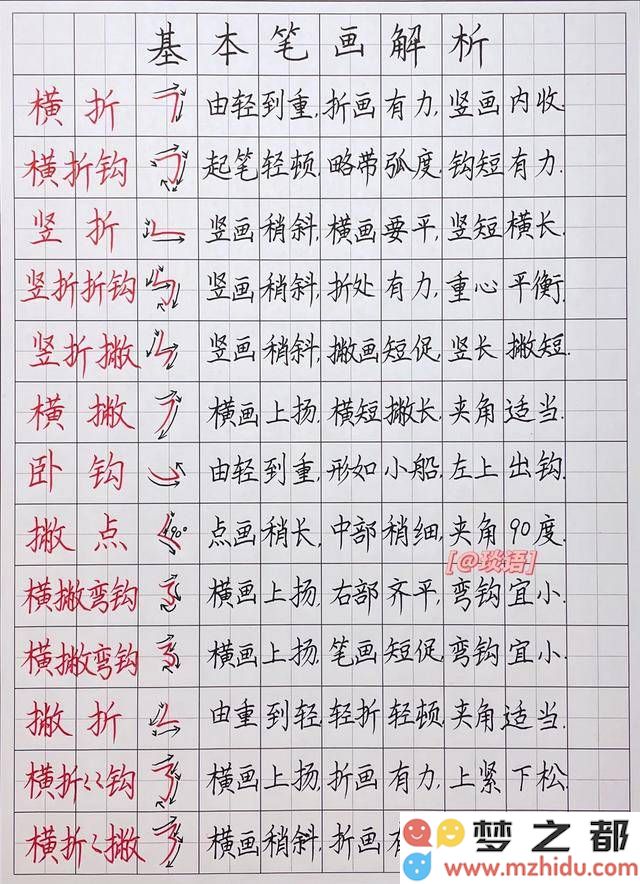 基本笔画解析
横折 由轻到重,折画有力,竖画内收.
横折钩 起笔轻顿,略带弧度,钩短有力.
竖折 竖画稍斜,横画要平,竖短横长.
竖折折钩 竖画稍斜,折处有力,重心平衡.
竖折撇 竖画稍斜,撇画短促,竖长撇短.
横撇 横画上扬,横短撇长,夹角适当.
卧钩 由轻到重,形如小船,左上出钩.
撇点 90° 点画稍长,中部稍细,夹角90度.
[@琰语]
横撇弯钩 横画上扬,右部齐平,弯钩宜小.
横撇弯钩 横画上扬,笔画短促,弯钩宜小.
撇折 由重到轻,轻折轻顿,夹角适当.
横折ㄑㄑ钩 横画上扬,折画有力,上紧下松.
横折ㄑ撇 横画稍斜,折画有
梦之都
www.mzhidu.com